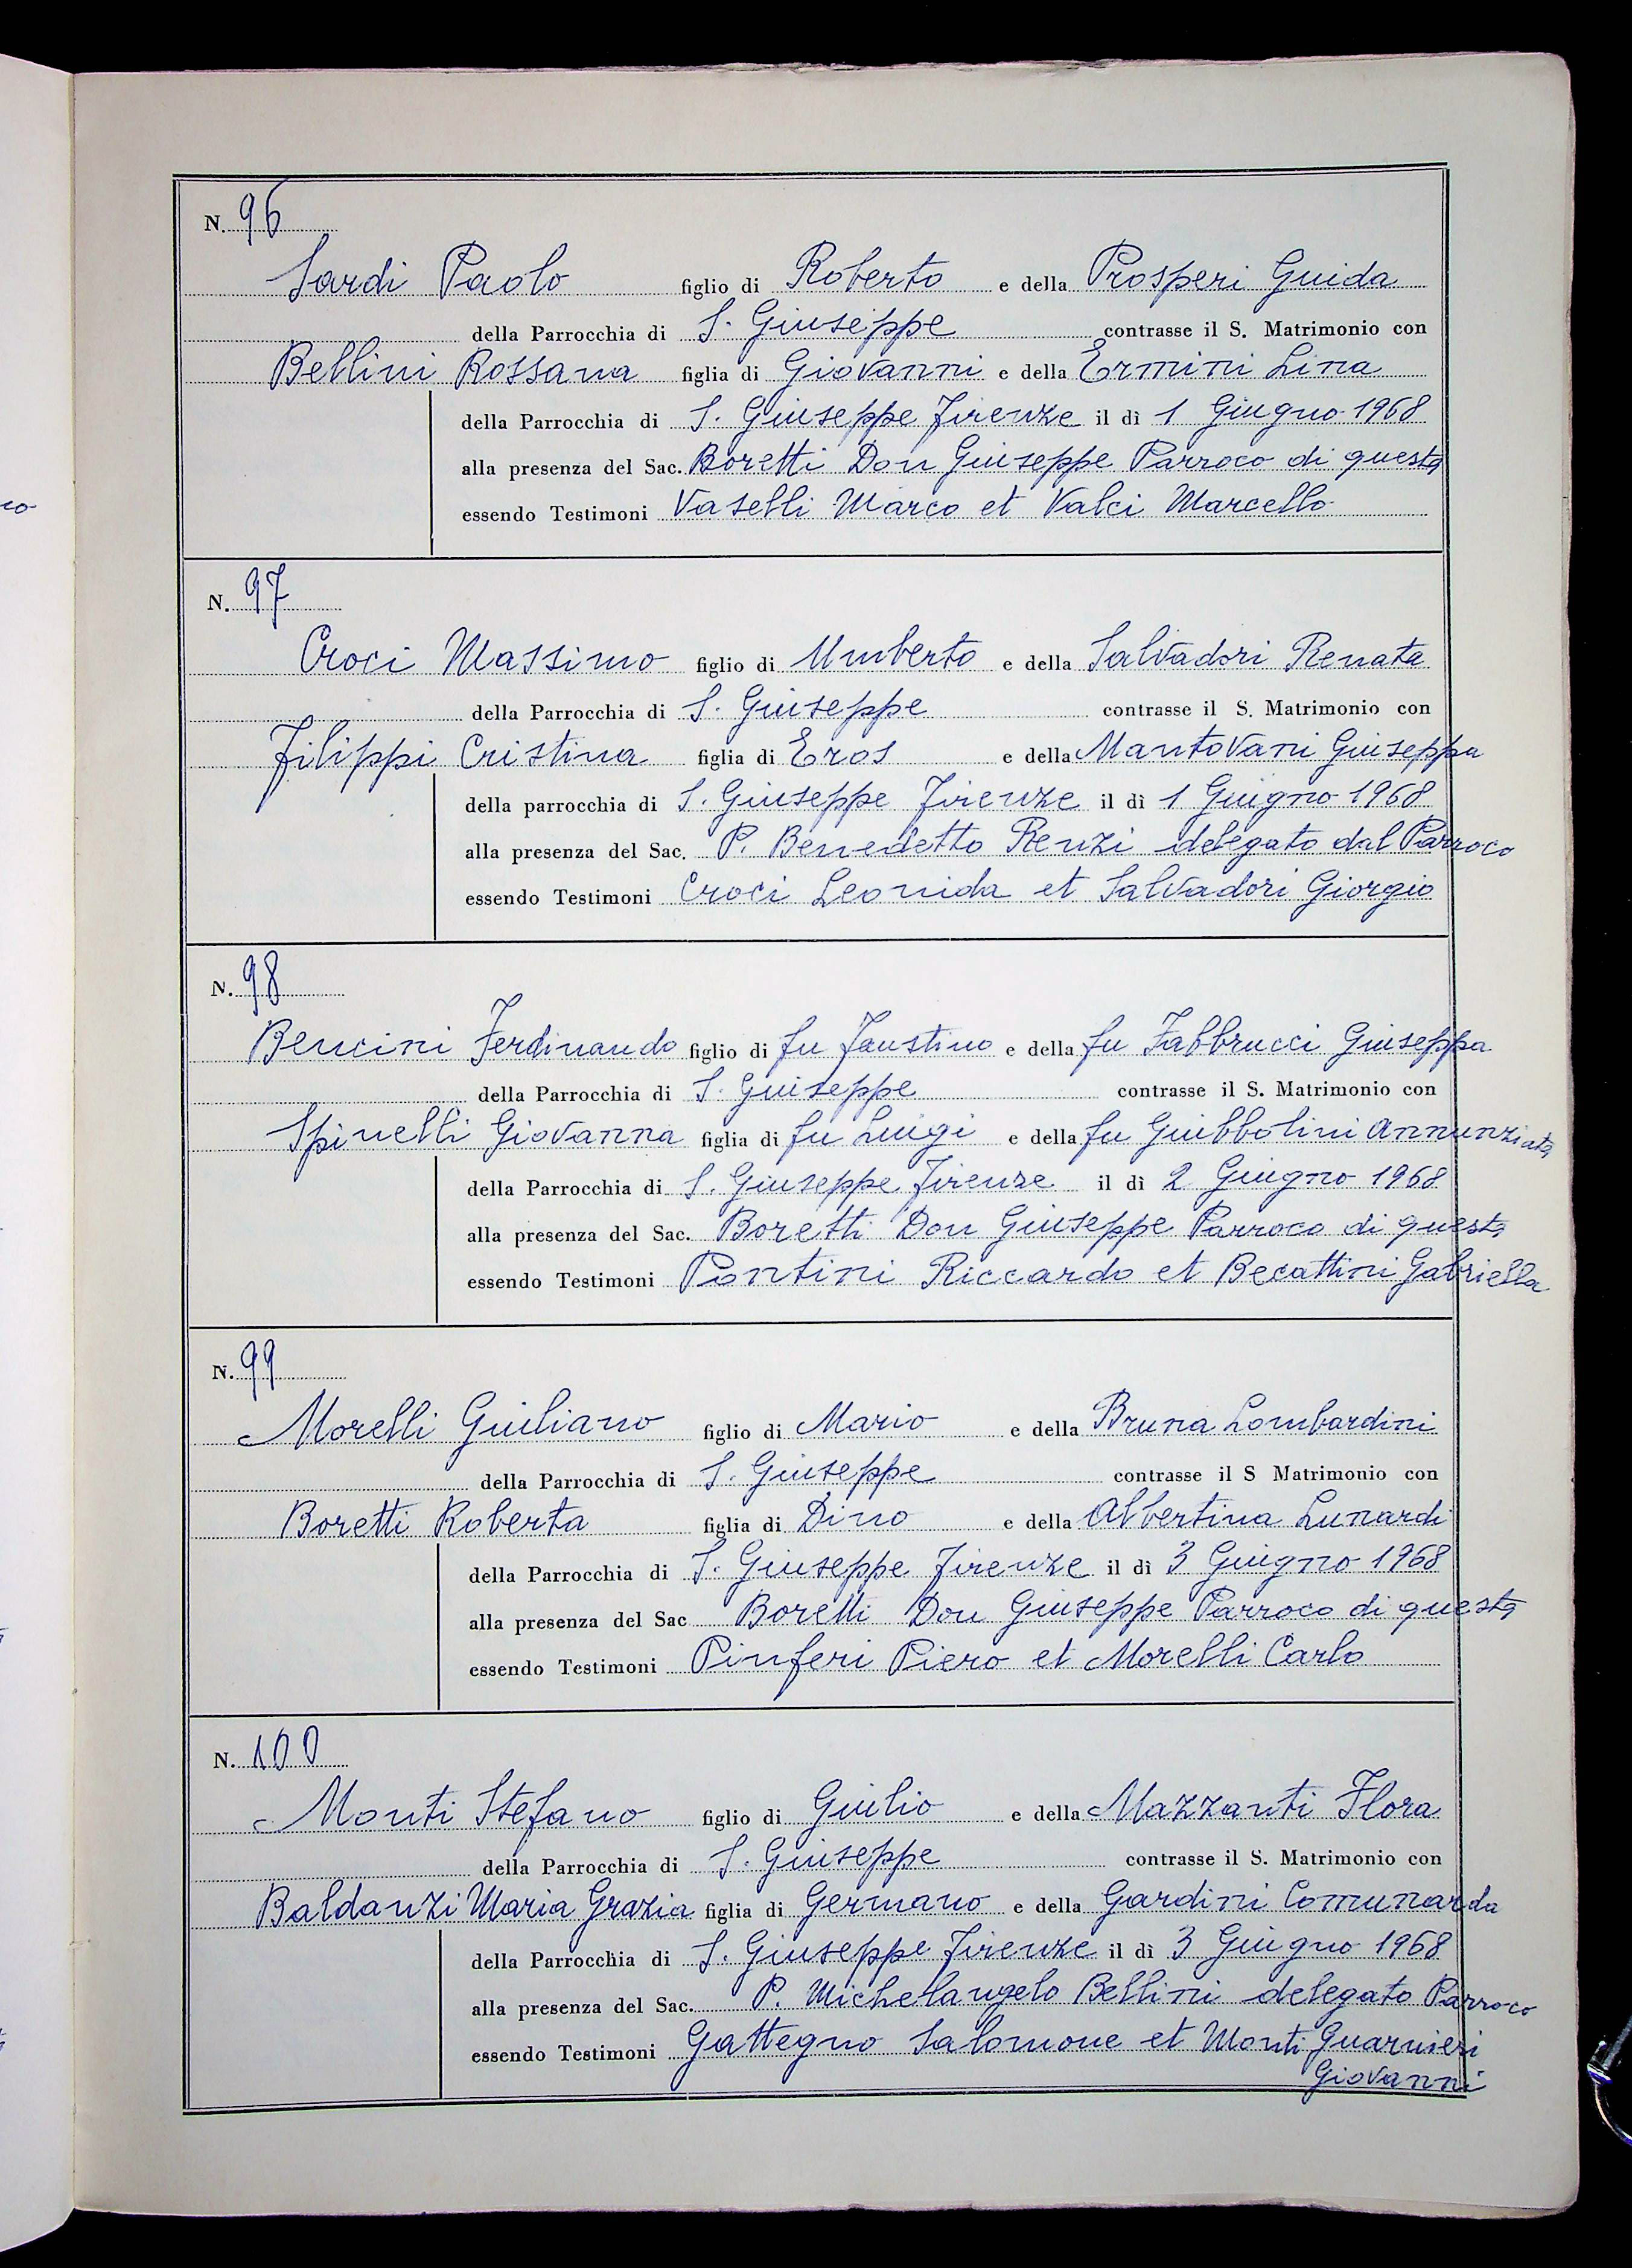 N. 96
Sardi Paolo figlio di Roberto e della Prosperi Guida
della Parrocchia di S. Giuseppe contrasse il S. Matrimonio con
Bellini Rossana figlia di Giovanni e della Ermini Lina
della Parrocchia di S. Giuseppe Firenze il dì 1 Giugno 1968
alla presenza del Sac. Boretti Don Giuseppe Parroco di questa
essendo Testimoni Vaselli Marco et Valci Marcello
N. 97
Croci Massimo figlio di Umberto e della Salvadori Renata
della Parrocchia di S. Giuseppe contrasse il S. Matrimonio con
Filippi Cristina figlia di Eros e della Mantovani Giuseppa
della parrocchia di S. Giuseppe Firenze il dì 1 Giugno 1968
alla presenza del Sac. P. Benedetto Renzi delegato dal Parroco
essendo Testimoni Croci Leonida et Salvadori Giorgio
N. 98
Bencini Ferdinando figlio di fu Faustino e della fu Fabbrucci Giuseppa
della Parrocchia di S. Giuseppe contrasse il S. Matrimonio con
Spinelli Giovanna figlia di fu Luigi e della fu Giubbolini Annunziata
della Parrocchia di S. Giuseppe Firenze il dì 2 Giugno 1968
alla presenza del Sac. Boretti Don Giuseppe Parroco di questa
essendo Testimoni Pontini Riccardo et Becattini Gabriella
N. 99
Morelli Giuliano figlio di Mario e della Bruna Lombardini
della Parrocchia di S. Giuseppe contrasse il S Matrimonio con
Boretti Roberta figlia di Dino e della Albertina Lunardi
della Parrocchia di S. Giuseppe Firenze il dì 3 Giugno 1968
alla presenza del Sac Boretti Don Giuseppe Parroco di questa
essendo Testimoni Pinferi Piero et Morelli Carlo
N. 100
Monti Stefano figlio di Giulio e della Mazzanti Flora
della Parrocchia di S. Giuseppe contrasse il S. Matrimonio con
Baldanzi Maria Grazia figlia di Germano e della Gardini Comunarda
della Parrocchia di S. Giuseppe Firenze il dì 3 Giugno 1968
alla presenza del Sac. P. Michelangelo Bellini delegato Parroco
essendo Testimoni Gattegno Salomone et Monti Guarnieri
Giovanni